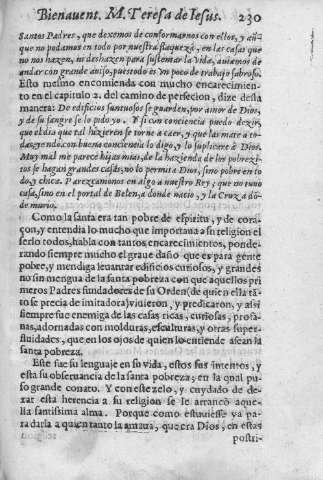 Bienauent. M. Teresa de Iesus. 230
Santos Padres, que dexemos de conformarnos con ellos, y aũ
que no podamos en todo por nuestra flaqueza, en las casas que
no nos hazen, ni deshazen para sustentar la vida, auiamos de
andar con grande auiso, pues todo es vn poco de trabajo sabroso.
Esto mesmo encomienda con mucho encarecimien-
to en el capitulo 2. del camino de perfecion, dize desta
manera: De edificios suntuosos se guarden, por amor de Dios,
y de su sangre se lo pido yo. Y si con conciencia puedo dezir,
que el dia que tal hizieren se torne a caer, y que las mate a to-
das, yendo con buena conciencia lo digo, y lo suplicarè a Dios.
Muy mal me parece hijas mias, de la hazienda de los pobrezi-
tos se hagan grandes casas, no lo permita Dios, sino pobre en to
do, y chica. Parezcamonos en algo a nuestro Rey, que no tuuo
casa, sino en el portal de Belen, a donde nacio, y la Cruz a dõ-
de murio.
Como la santa era tan pobre de espiritu, y de cora-
çon, y entendia lo mucho que importaua a su religion el
serlo todos, habla con tantos encarecimientos, ponde-
rando siempre mucho el graue daño que es para gente
pobre, y mendiga leuantar edificios curiosos, y grandes
no sin mengua de la santa pobreza con que aquellos pri
meros Padres fundadores de su Orden (de quien ella tã-
to se precia de imitadora) viuieron, y predicaron, y assi
siempre fue enemiga de las casas ricas, curiosas, profa-
nas, adornadas con molduras, esculturas, y otras super-
fluidades, que en los ojos de quien lo entiende afean la
santa pobreza.
Este fue su lenguaje en su vida, estos sus intentos, y
esta su obseruancia de la santa pobreza; en la qual pu-
so grande conato. Y con este zelo, y cuydado de de-
xar esta herencia a su religion se le arrancò aque-
lla santissima alma. Porque como estuuiesse ya pa-
ra darla a quien tanto la amaua, que era Dios, en estas
postri-